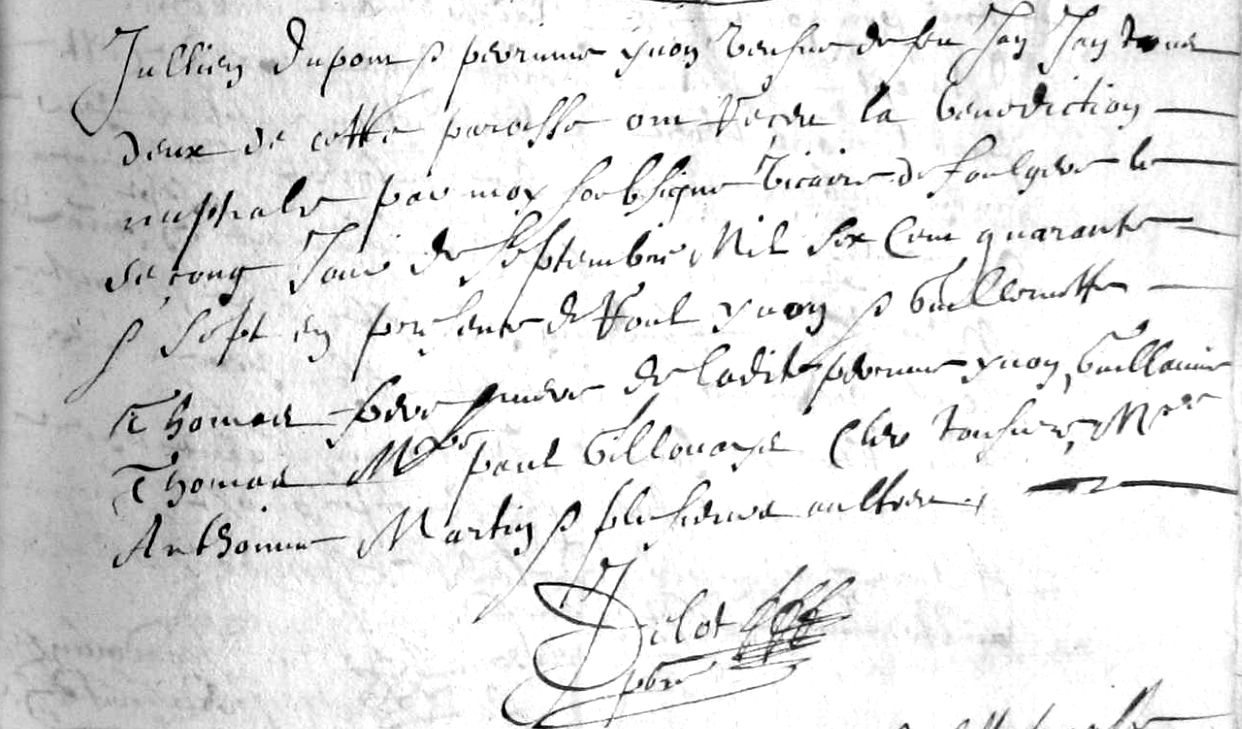 Jullien Dupont & perrinne yuon veufue de feu Jan Jan tous
deux de cette paroisse ont Receu la benediction
nuptiale par moy soubsigne Vicaire de foulgere le
second Jour de septembre Mil six Cent quarante
& sept en presence de Raoul yuon & Guillemette
Thomas pere & mere de ladite perrinne yuon, Guillaume
Thomas Mre paul Gillouaye Clerc tonsure, Mre
Anthoinne Martin & plusieurs aultres.
Delot
pbre